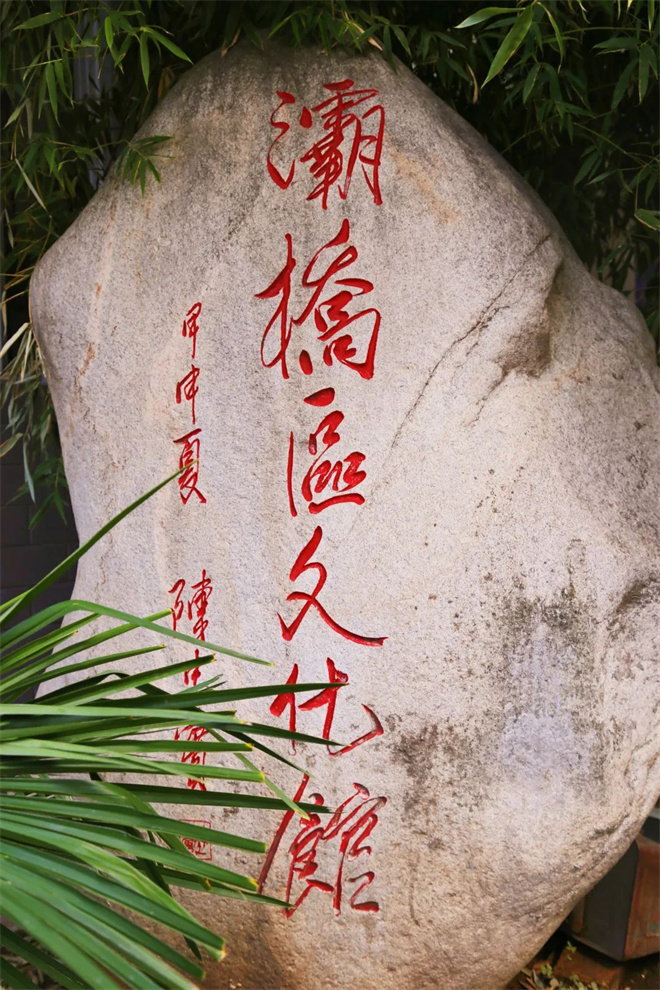 灞橋區文化館
甲申夏 陳忠實